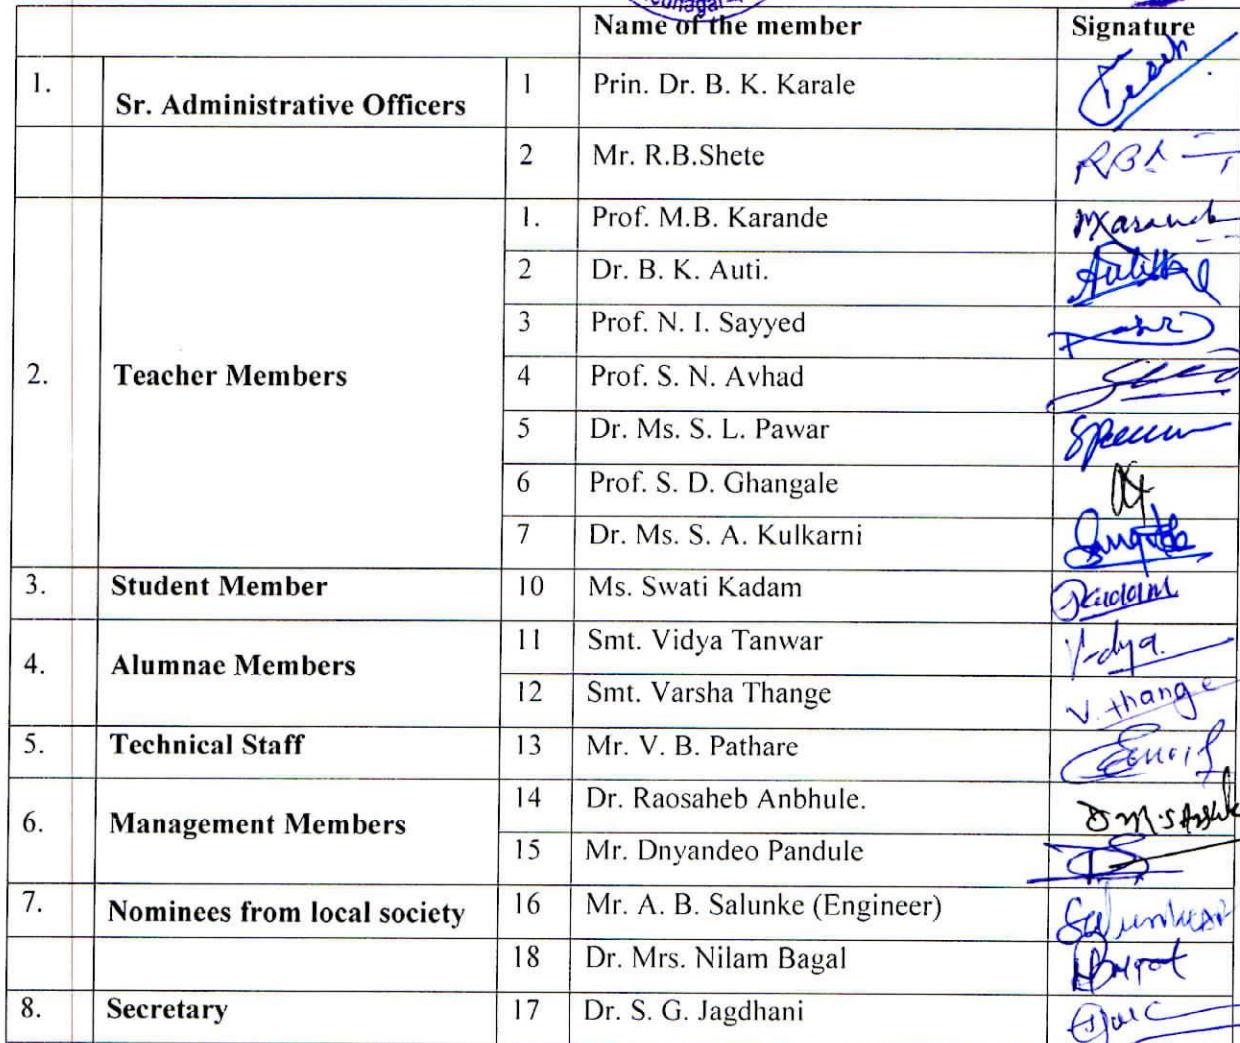 Name of the member Signature
1. Sr. Administrative Officers 1 Prin. Dr. B. K. Karale
2 Mr. R.B.Shete
2. Teacher Members 1. Prof. M.B. Karande
2 Dr. B. K. Auti.
3 Prof. N. I. Sayyed
4 Prof. S. N. Avhad
5 Dr. Ms. S. L. Pawar
6 Prof. S. D. Ghangale
7 Dr. Ms. S. A. Kulkarni
3. Student Member 10 Ms. Swati Kadam
4. Alumnae Members 11 Smt. Vidya Tanwar Vidya
12 Smt. Varsha Thange V. Thange
5. Technical Staff 13 Mr. V. B. Pathare
6. Management Members 14 Dr. Raosaheb Anbhule.
15 Mr. Dnyandeo Pandule
7. Nominees from local society 16 Mr. A. B. Salunke (Engineer)
18 Dr. Mrs. Nilam Bagal
8. Secretary 17 Dr. S. G. Jagdhani